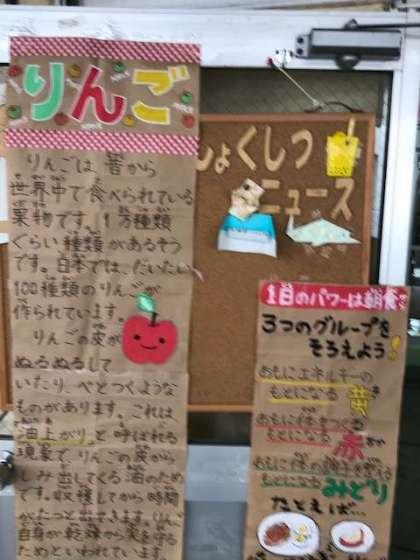 りんご
りんごは、昔から
世界中で食べられている
果物です。1万種類
ぐらい種類があるそう
です。日本では、だいたい
100種類のりんごが
作られています。
りんごの皮が
ぬるぬるして
いたり、べとつくような
ものがあります。これは
油上がりと呼ばれる
現象で、りんごの皮から
しみ出してくる油のため
です。収穫してから時間
がたつと出てきます。りんご
自身が乾燥から実を守る
ためといわれています。
しょくしつ
ニュース
1日のパワーは朝食で
3つのグループを
そろえよう!
おもにエネルギーの
もとになる 黄
おもに体をつくる
もとになる 赤
おもに体の調子を整える
もとになる みどり
たとえば…